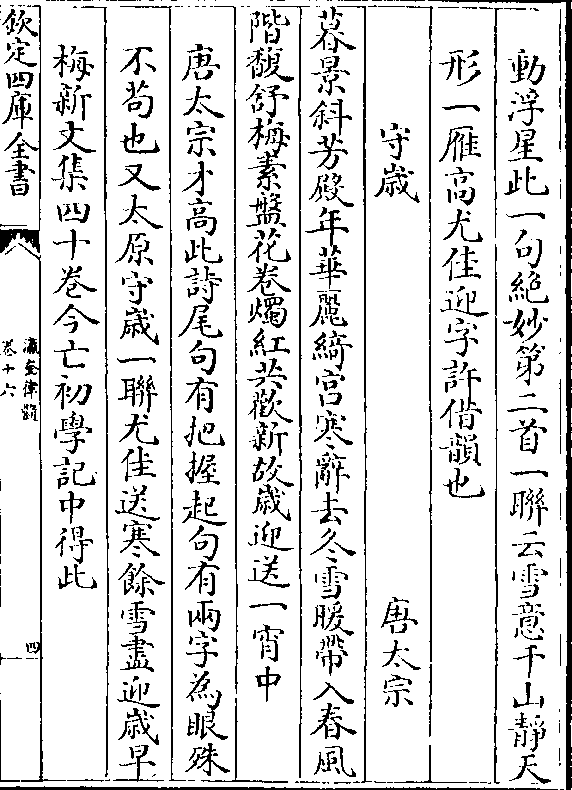 動浮星此一句絶妙第二首一聯云雪意千山靜天
形一雁髙尤佳迎字許借韻也
守歳 唐太宗
暮景斜芳殿年華麗綺宫寒辭去冬雪暖帶入春風
階馥舒梅素盤花卷燭紅共歡新故歳迎送一宵中
唐太宗才髙此詩尾句有把握起句有兩字為眼殊
不苟也又太原守歳一聯尤佳送寒餘雪盡迎歳早
梅新文集四十卷今亡初學記中得此
欽定四庫全書
瀛奎律髓
卷十六
四